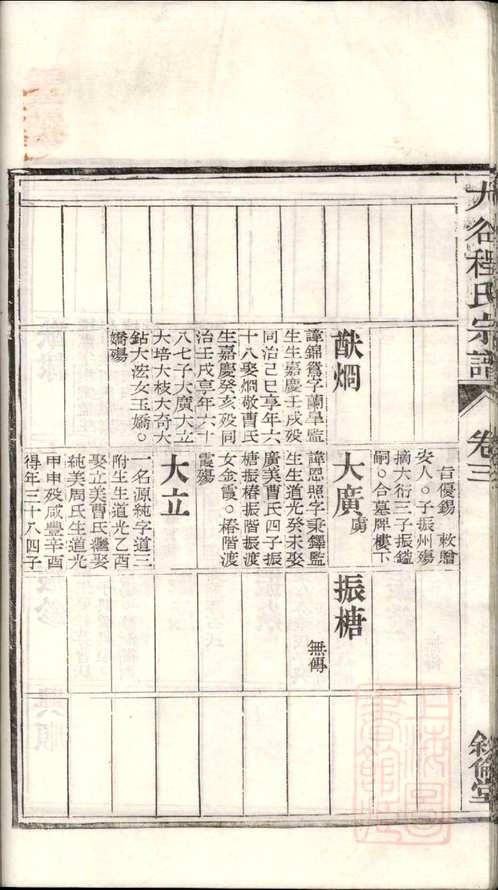 大谷程氏宗譜
卷三
叙倫堂
旨優錫 敕贈
安人。子振州殤
摘大衍三子振鑑
嗣。合墓牌樓下
猷烱
諱錦鴛字蘭臯監
生生嘉慶壬戌歿
同治己巳享年六
十八娶烱敬曹氏
生嘉慶癸亥歿同
治壬戌享年六十
八七子大廣大立
大培大枝大奇大
鈷大浤女玉嬌。
嬌殤
大廣
諱恩照字秉鐸監
生生道光癸未娶
廣美曹氏四子振
榶振椿振階振渡
女金霞。椿階渡
霞殤
大立
一名源純字道三
附生生道光乙酉
娶立美曹氏繼娶
純美周氏生道光
甲申歿咸豐辛酉
得年三十八四子
振榶
無傳